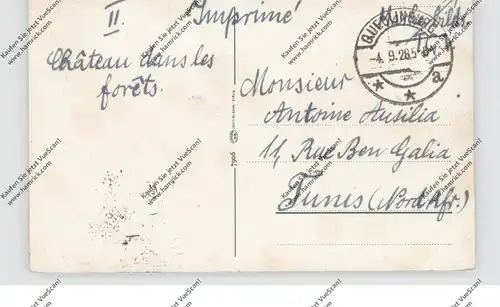 II. Imprimé
Château dans les
forêts.
QUEDLINBURG
-4. 9.28.5-6N
* * a
Monsieur
Antoine Ausilia
11, Rue Ben Galia
Tunis (Nord Afr.)
7906
Kaufen Sie jetzt VueScan!
www.hamrick.com